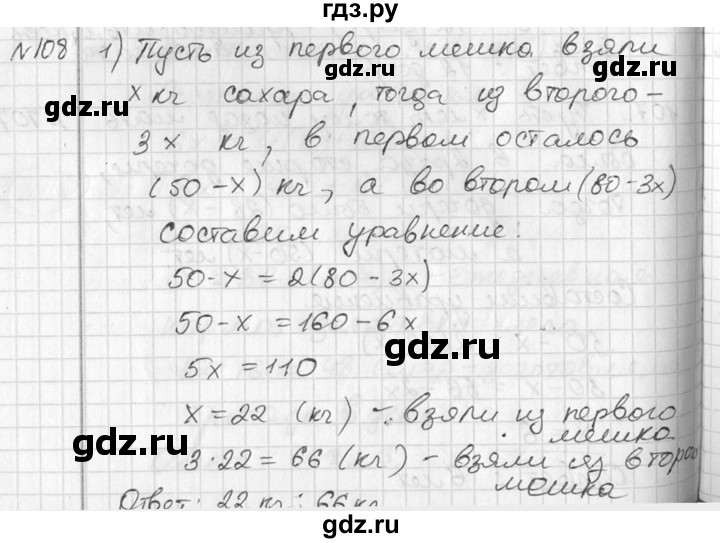 гдз.ру
№108 1) Пусть из первого мешка взяли
x кг сахара, тогда из второго -
3x кг, в первом осталось
(50-x) кг, а во втором (80-3x)
составим уравнение:
50-x = 2(80-3x)
50-x = 160-6x
5x = 110
x = 22 (кг) - взяли из первого
мешка
3·22 = 66 (кг) - взяли из второго
мешка
Ответ: 22 кг; 66 кг
gdz.ru
gdz.ru
gdz.ru
gdz.ru
gdz.ru